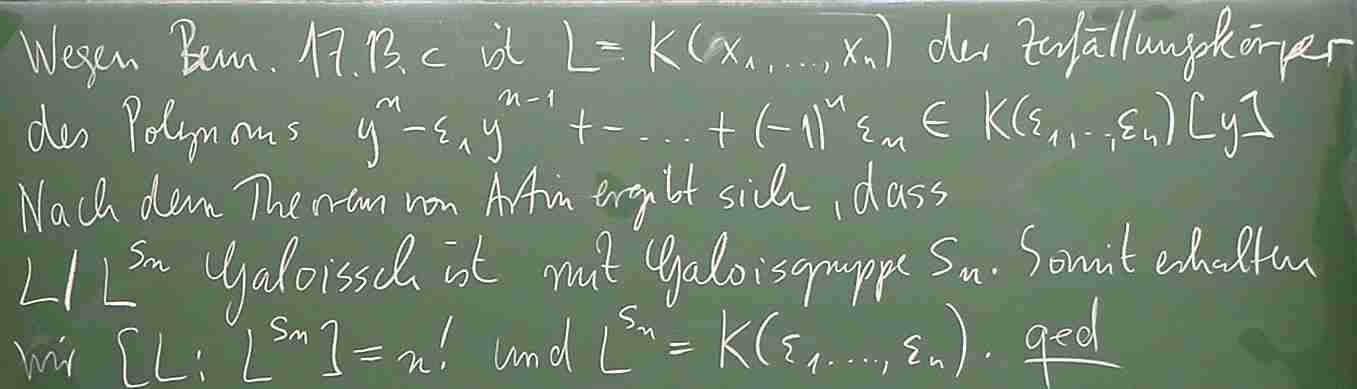 Wegen Bem. 17.13.c ist L = K(x₁,...,xₙ) der Zerfällungskörper
des Polynoms yⁿ - ε₁yⁿ⁻¹ + - ... + (-1)ⁿ εₙ ∈ K(ε₁,..,εₙ)[y]
Nach dem Theorem von Artin ergibt sich, dass
L/L^{Sₙ} Galoissch ist mit Galoisgruppe Sₙ. Somit erhalten
wir [L: L^{Sₙ}] = n! und L^{Sₙ} = K(ε₁...., εₙ). qed